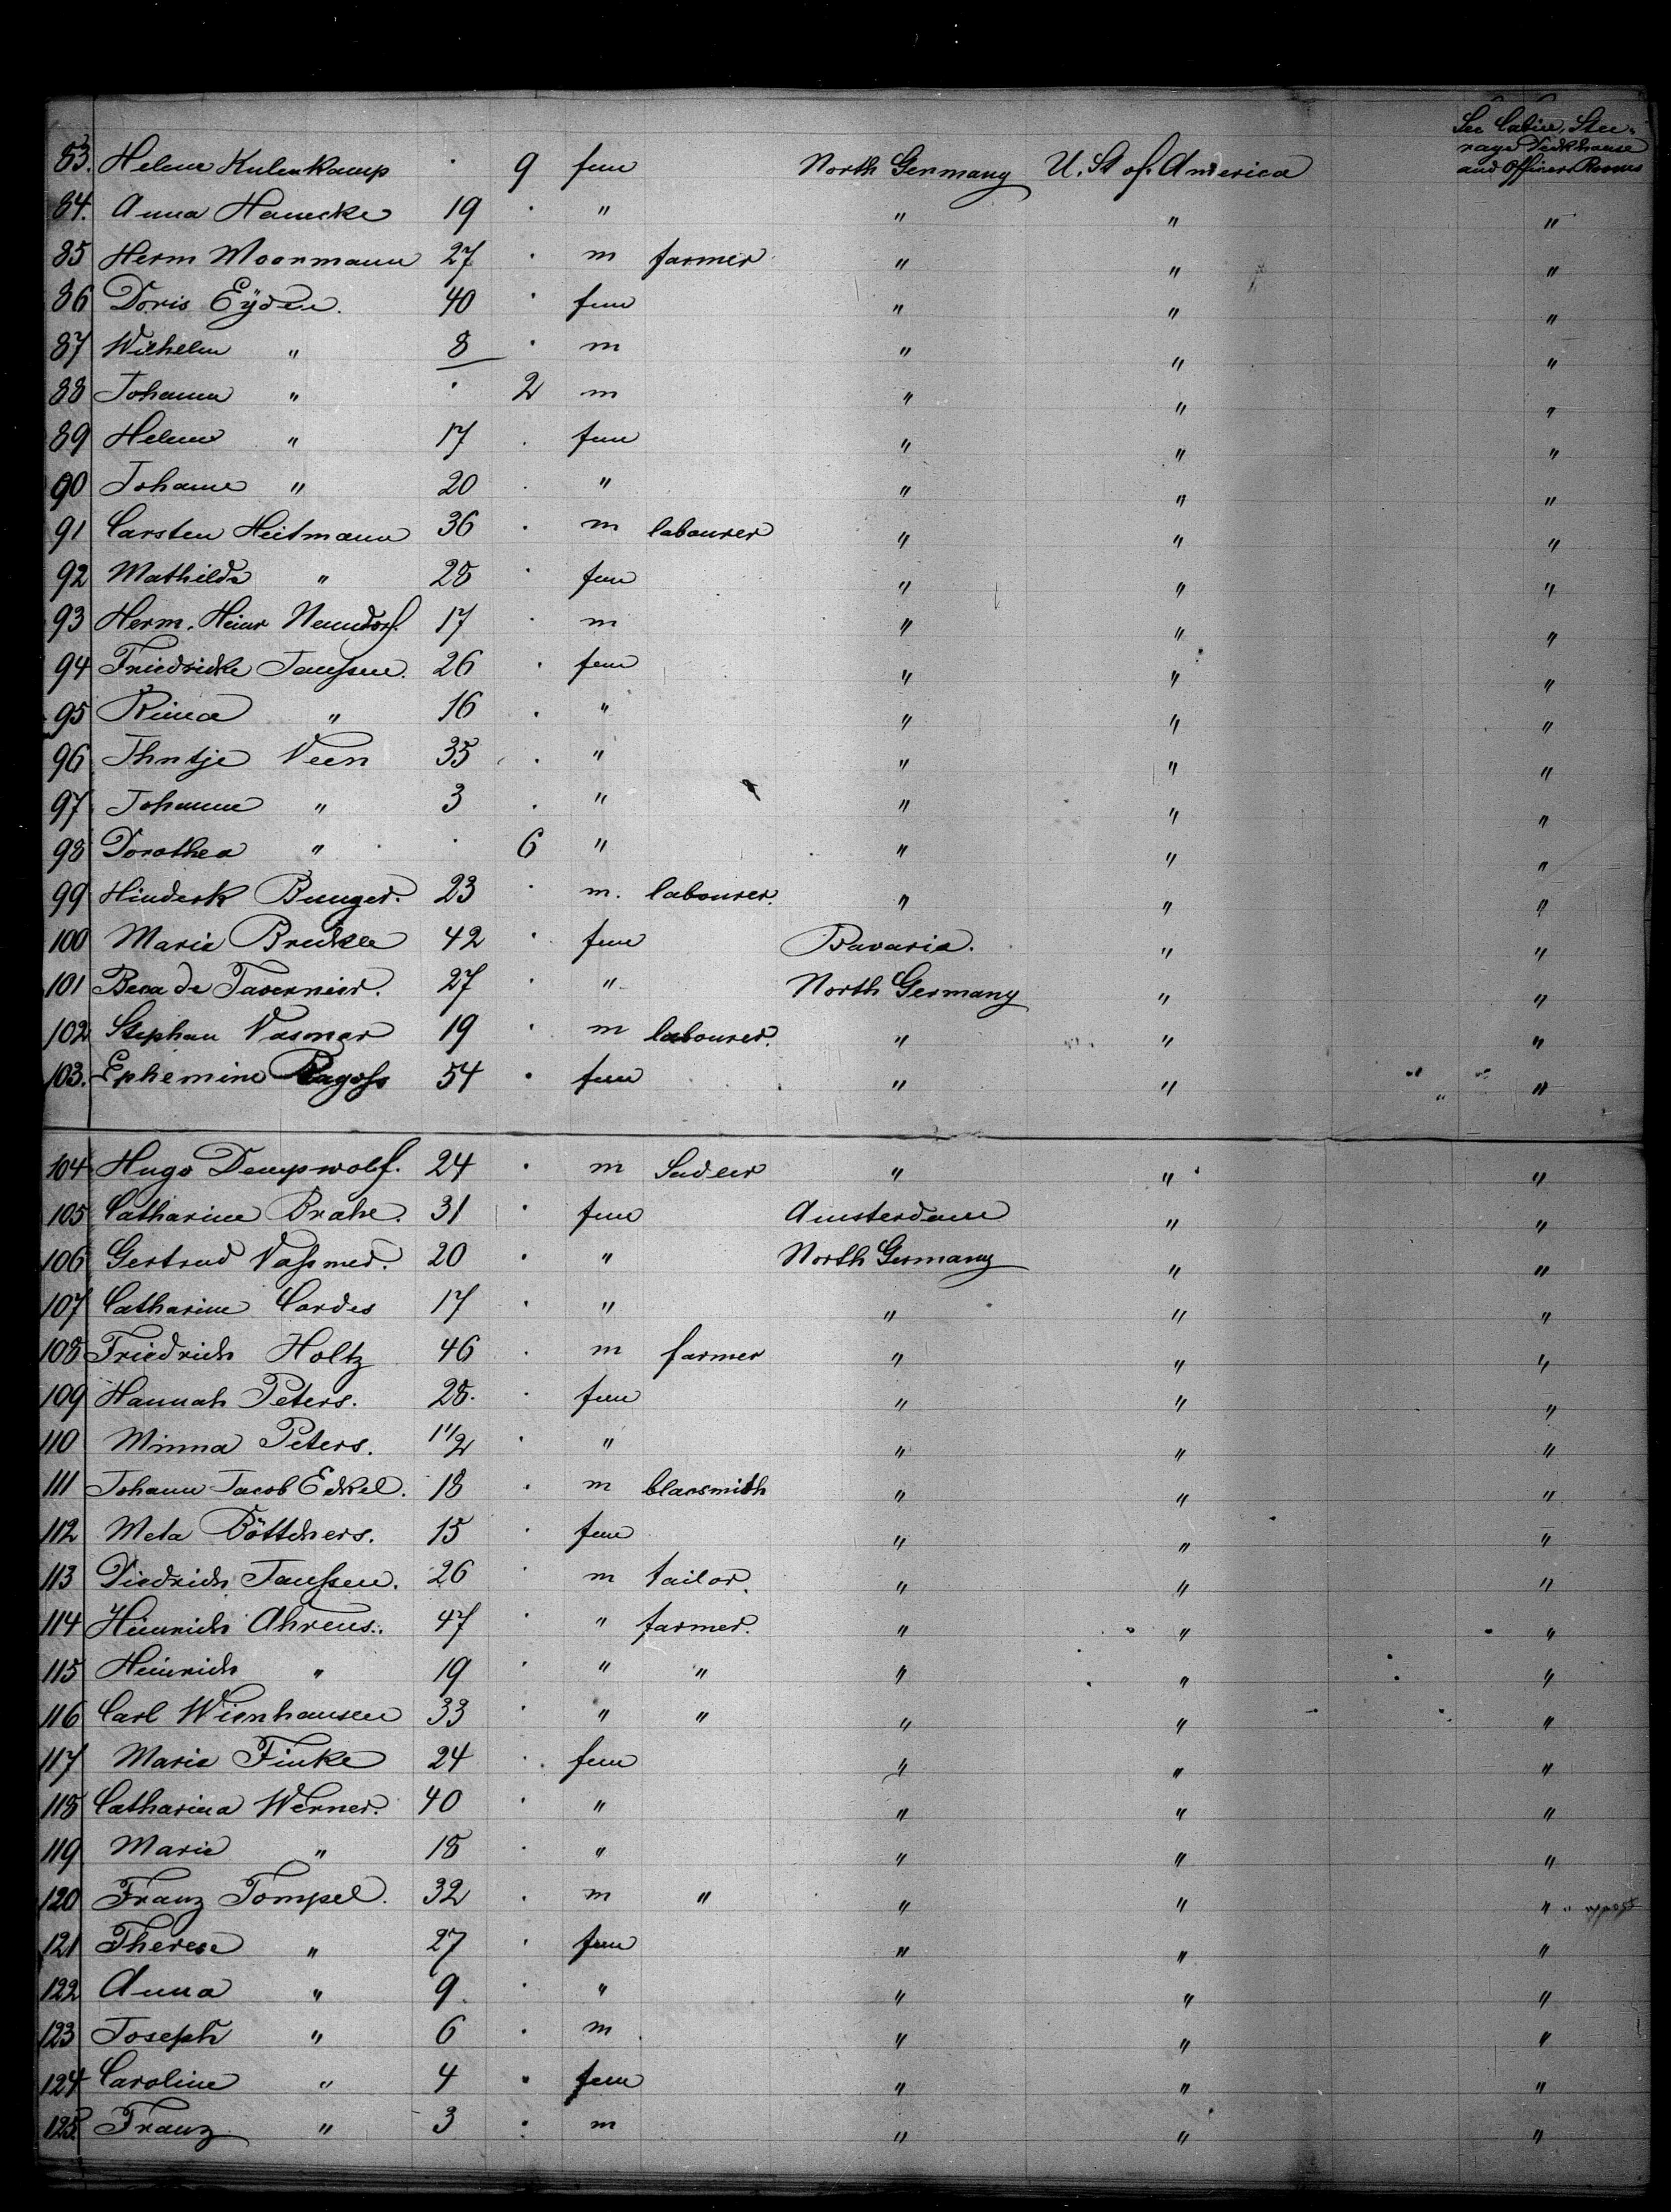 Sec Cabin, Stee-
rage Deckhouse
and Officers Rooms
83. Helene Kulenkamp . 9 fem North Germany U. St of. America
84. Anna Hanecke 19 . " " " "
85 Herm Moormann 27 . m farmer " " "
86 Doris Eÿden. 40 . fem " " "
87 Wilhelm " 8 . m " " "
88 Johann " . 2 m " " "
89 Helene " 17 . fem " " "
90 Johanne " 20 . " " " "
91 Carsten Heitmann 36 . m labourer " " "
92 Mathilde " 28 . fem " " "
93 Herm. Heinr Nenndorf. 17 . m " " "
94 Friedricke Janssen. 26 . fem " " "
95 Rimca " 16 . " " " "
96 Thntje Veen 35 . " " " "
97 Johanne " 3 . " " " "
98 Dorothea " . 6 " " " "
99 Hinderk Bunger. 23 . m. labourer. " " "
100 Marie 42 . fem Bavaria. " "
101 Beca de Tavernier. 27 . " North Germany " "
102 Stephan Vasmer 19 . m labourer. " " "
103. Ephemine Ragoss 54 . fem " " "
104 Hugo Dempwolf. 24 . m Sadler " " "
105 Catharine Brahe. 31 . fem Amsterdam " "
106 Gertrud Vassmer. 20 . " North Germany " "
107 Catharine Cordes 17 . " " " "
108 Friedrich Holtz 46 . m farmer " " "
109 Hannah Peters. 28. . fem " " "
110 Minna Peters. 1 1/2 . " " " "
111 Johann Jacob Eckel. 18 . m blacsmith " " "
112 Meta Böttchers. 15 . fem " " "
113 Diedrich Janssen. 26 . m tailor. " " "
114 Heinrich Ahrens. 47 . " farmer. " " "
115 Heinrich " 19 . " " " " "
116 Carl Wienhausen 33 . " " " " "
117 Marie Finke 24 . fem " " "
118 Catharina Werner. 40 . " " " "
119 Marie " 18 . " " " "
120 Franz Tompel. 32 . m " " " "
121 Therese " 27 . fem " " "
122 Anna " 9 . " " " "
123 Joseph " 6 . m " " "
124 Caroline " 4 . fem " " "
125. Franz " 3 . m " " "